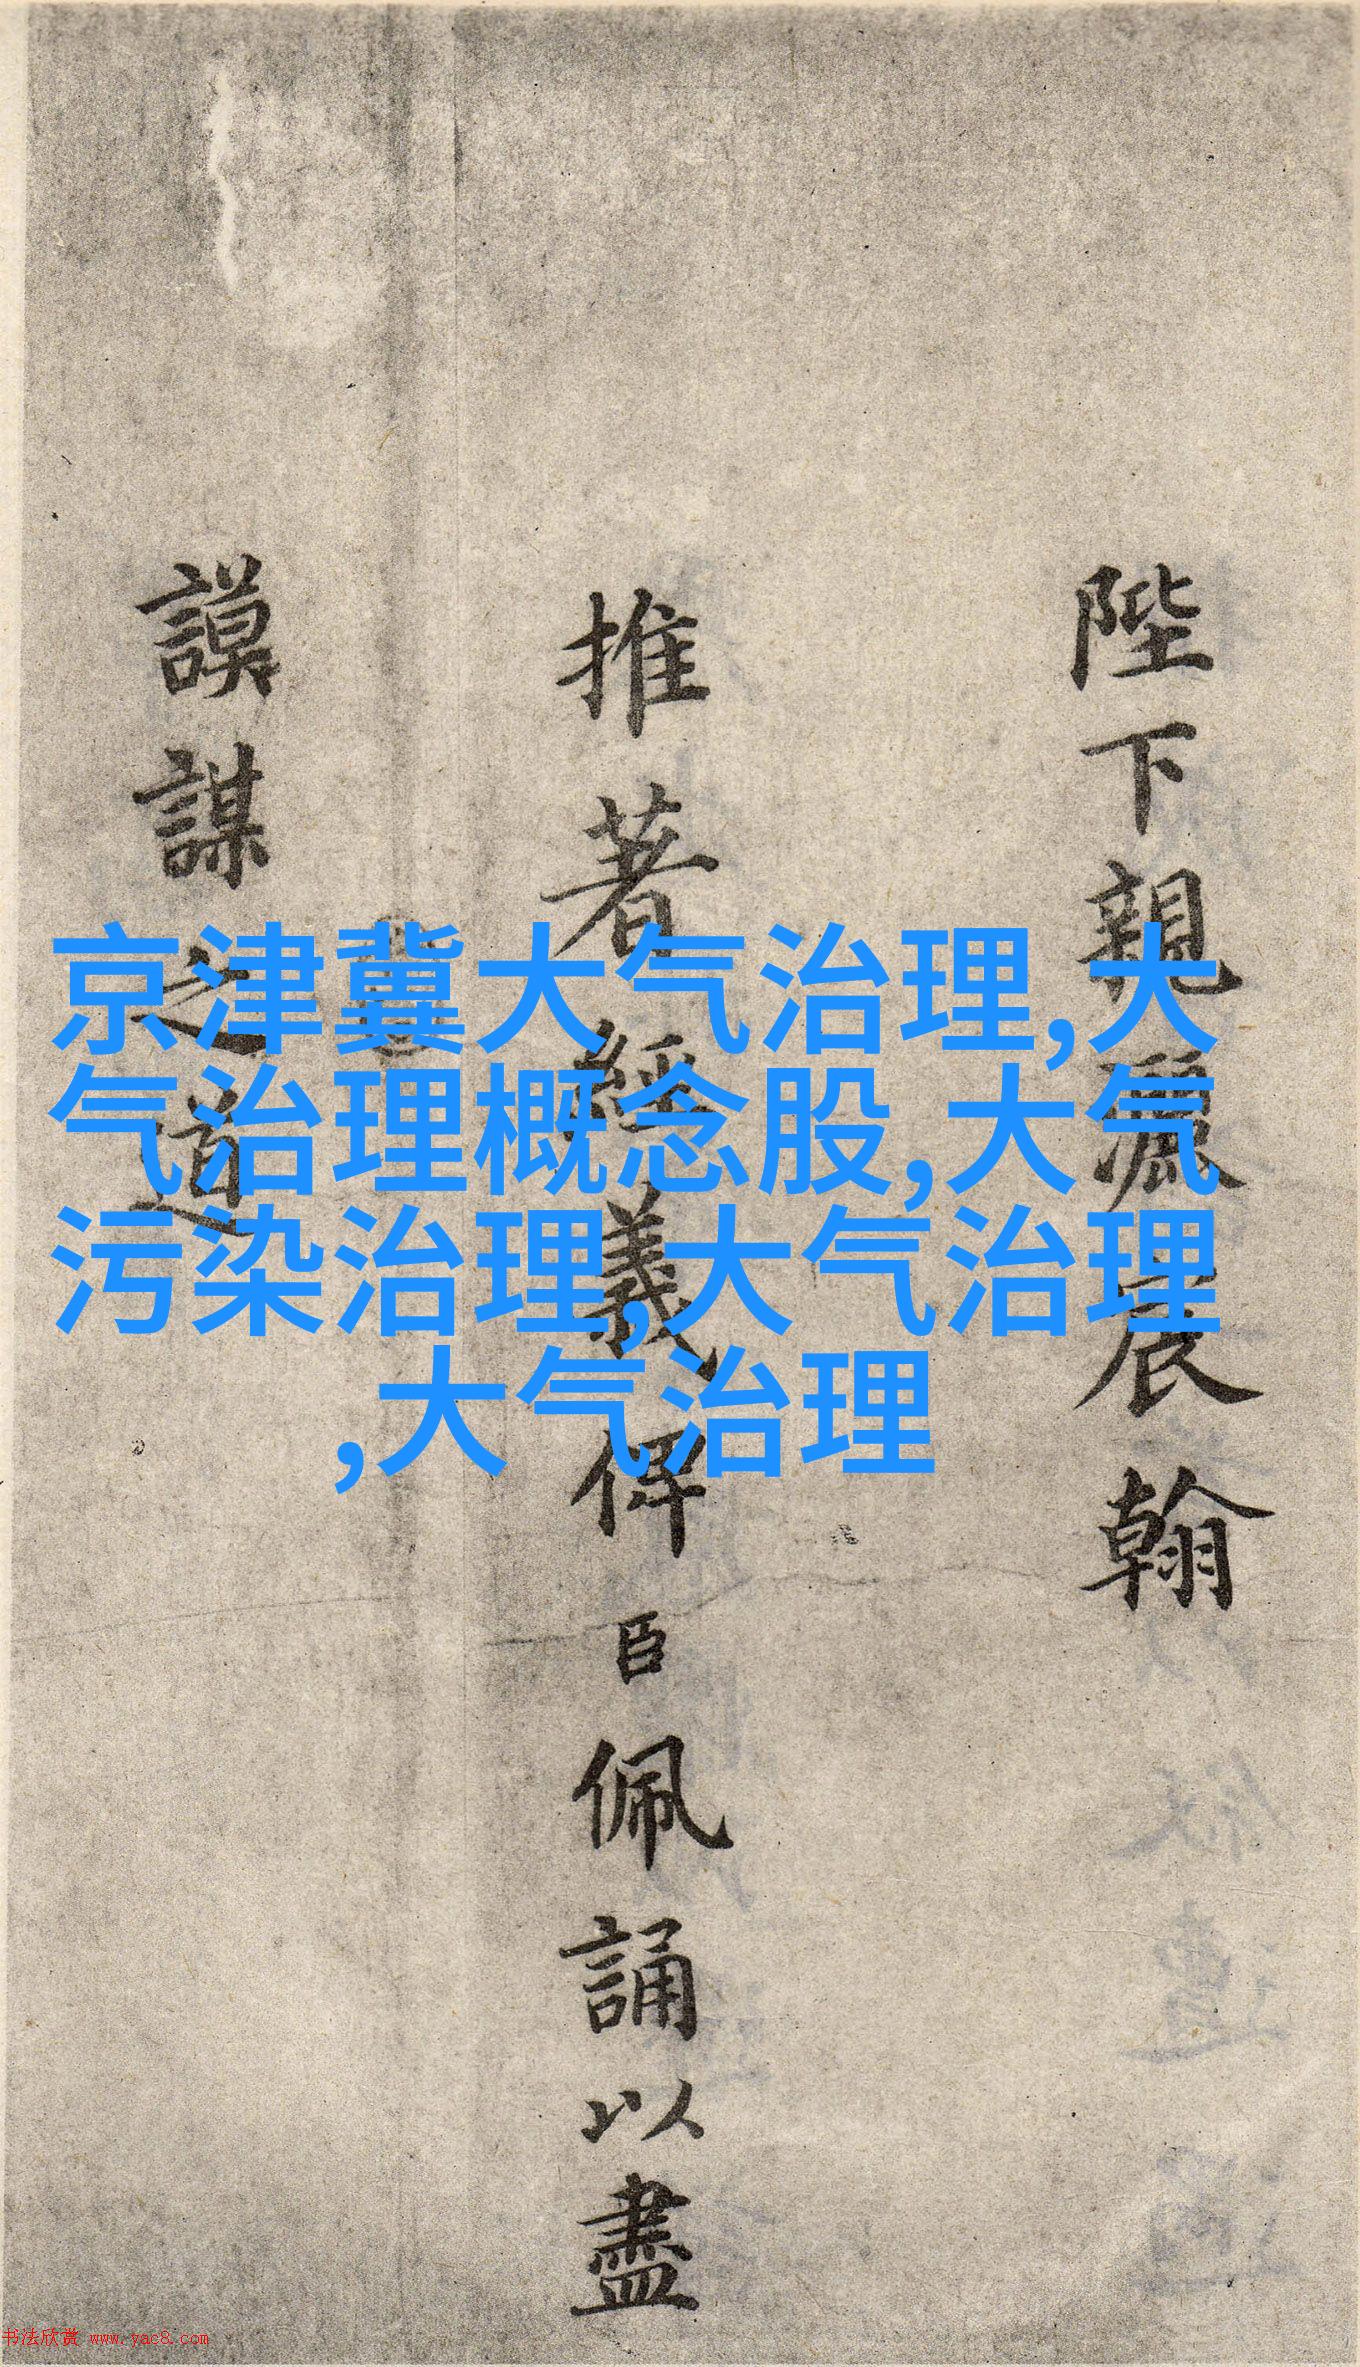 陛下親灑宸翰
推著經義俾臣佩誦以盡
謨謀之道
京津冀大气治理,大
气治理概念股,大气
污染治理,大气治理
,大气治理
书法欣赏 www.yac8.com